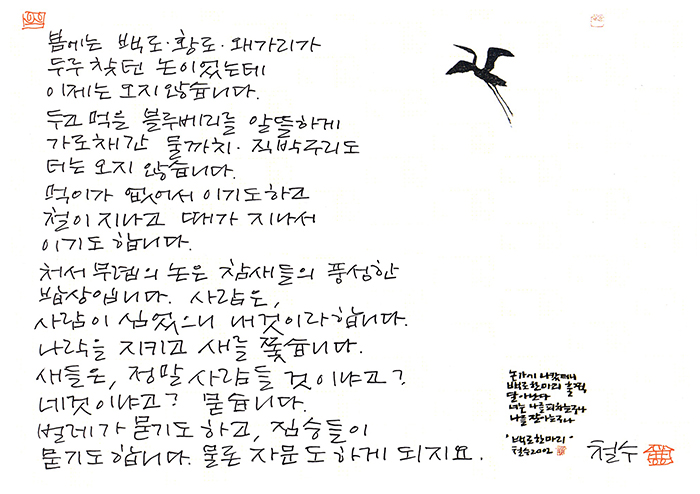 봄에는 백로·황로·왜가리가
두루 찾던 논이었는데
이제는 오지 않습니다.
두고 먹을 블루베리를 알뜰하게
가로채간 물까치·직박구리도
더는 오지 않습니다.
먹이가 없어서 이기도하고
철이 지나고 때가 지나서
이기도 합니다.
처서 무렵의 논은 참새들의 풍성한
밥상입니다. 사람은,
사람이 심었으니 내것이라합니다.
나락을 지키고 새를 쫓습니다.
새들은, 정말 사람들 것이냐고?
네것이냐고? 묻습니다.
벌레가 묻기도 하고, 짐승들이
묻기도 합니다. 물론 자문도 하게 되지요.
논가에 나갔더니
백로한마리 훌쩍
달아난다
너는 나를 피하는구나
나를 잘아는구나
"백로한마리"
철수2002
철수